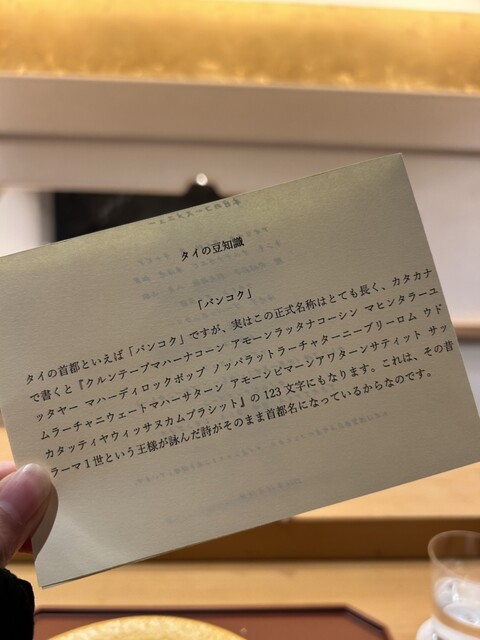 タイの豆知識
「バンコク」
タイの首都といえば「バンコク」ですが、実はこの正式名称はとても長く、カタカナ
で書くと『クルンテープマハーナコーン アモーンラッタナコーシン マヒンタラーユ
ッタヤー マハーディロックポップ ノッパラットラーチャターニーブリーロム ウド
ムラーチャニウェートマハーサターン アモーンピマーンアワターンサティット サッ
カタッティヤウィッサヌカムプラシット』の 123 文字にもなります。これは、その昔
ラーマ 1 世という王様が詠んだ詩がそのまま首都名になっているからなのです。